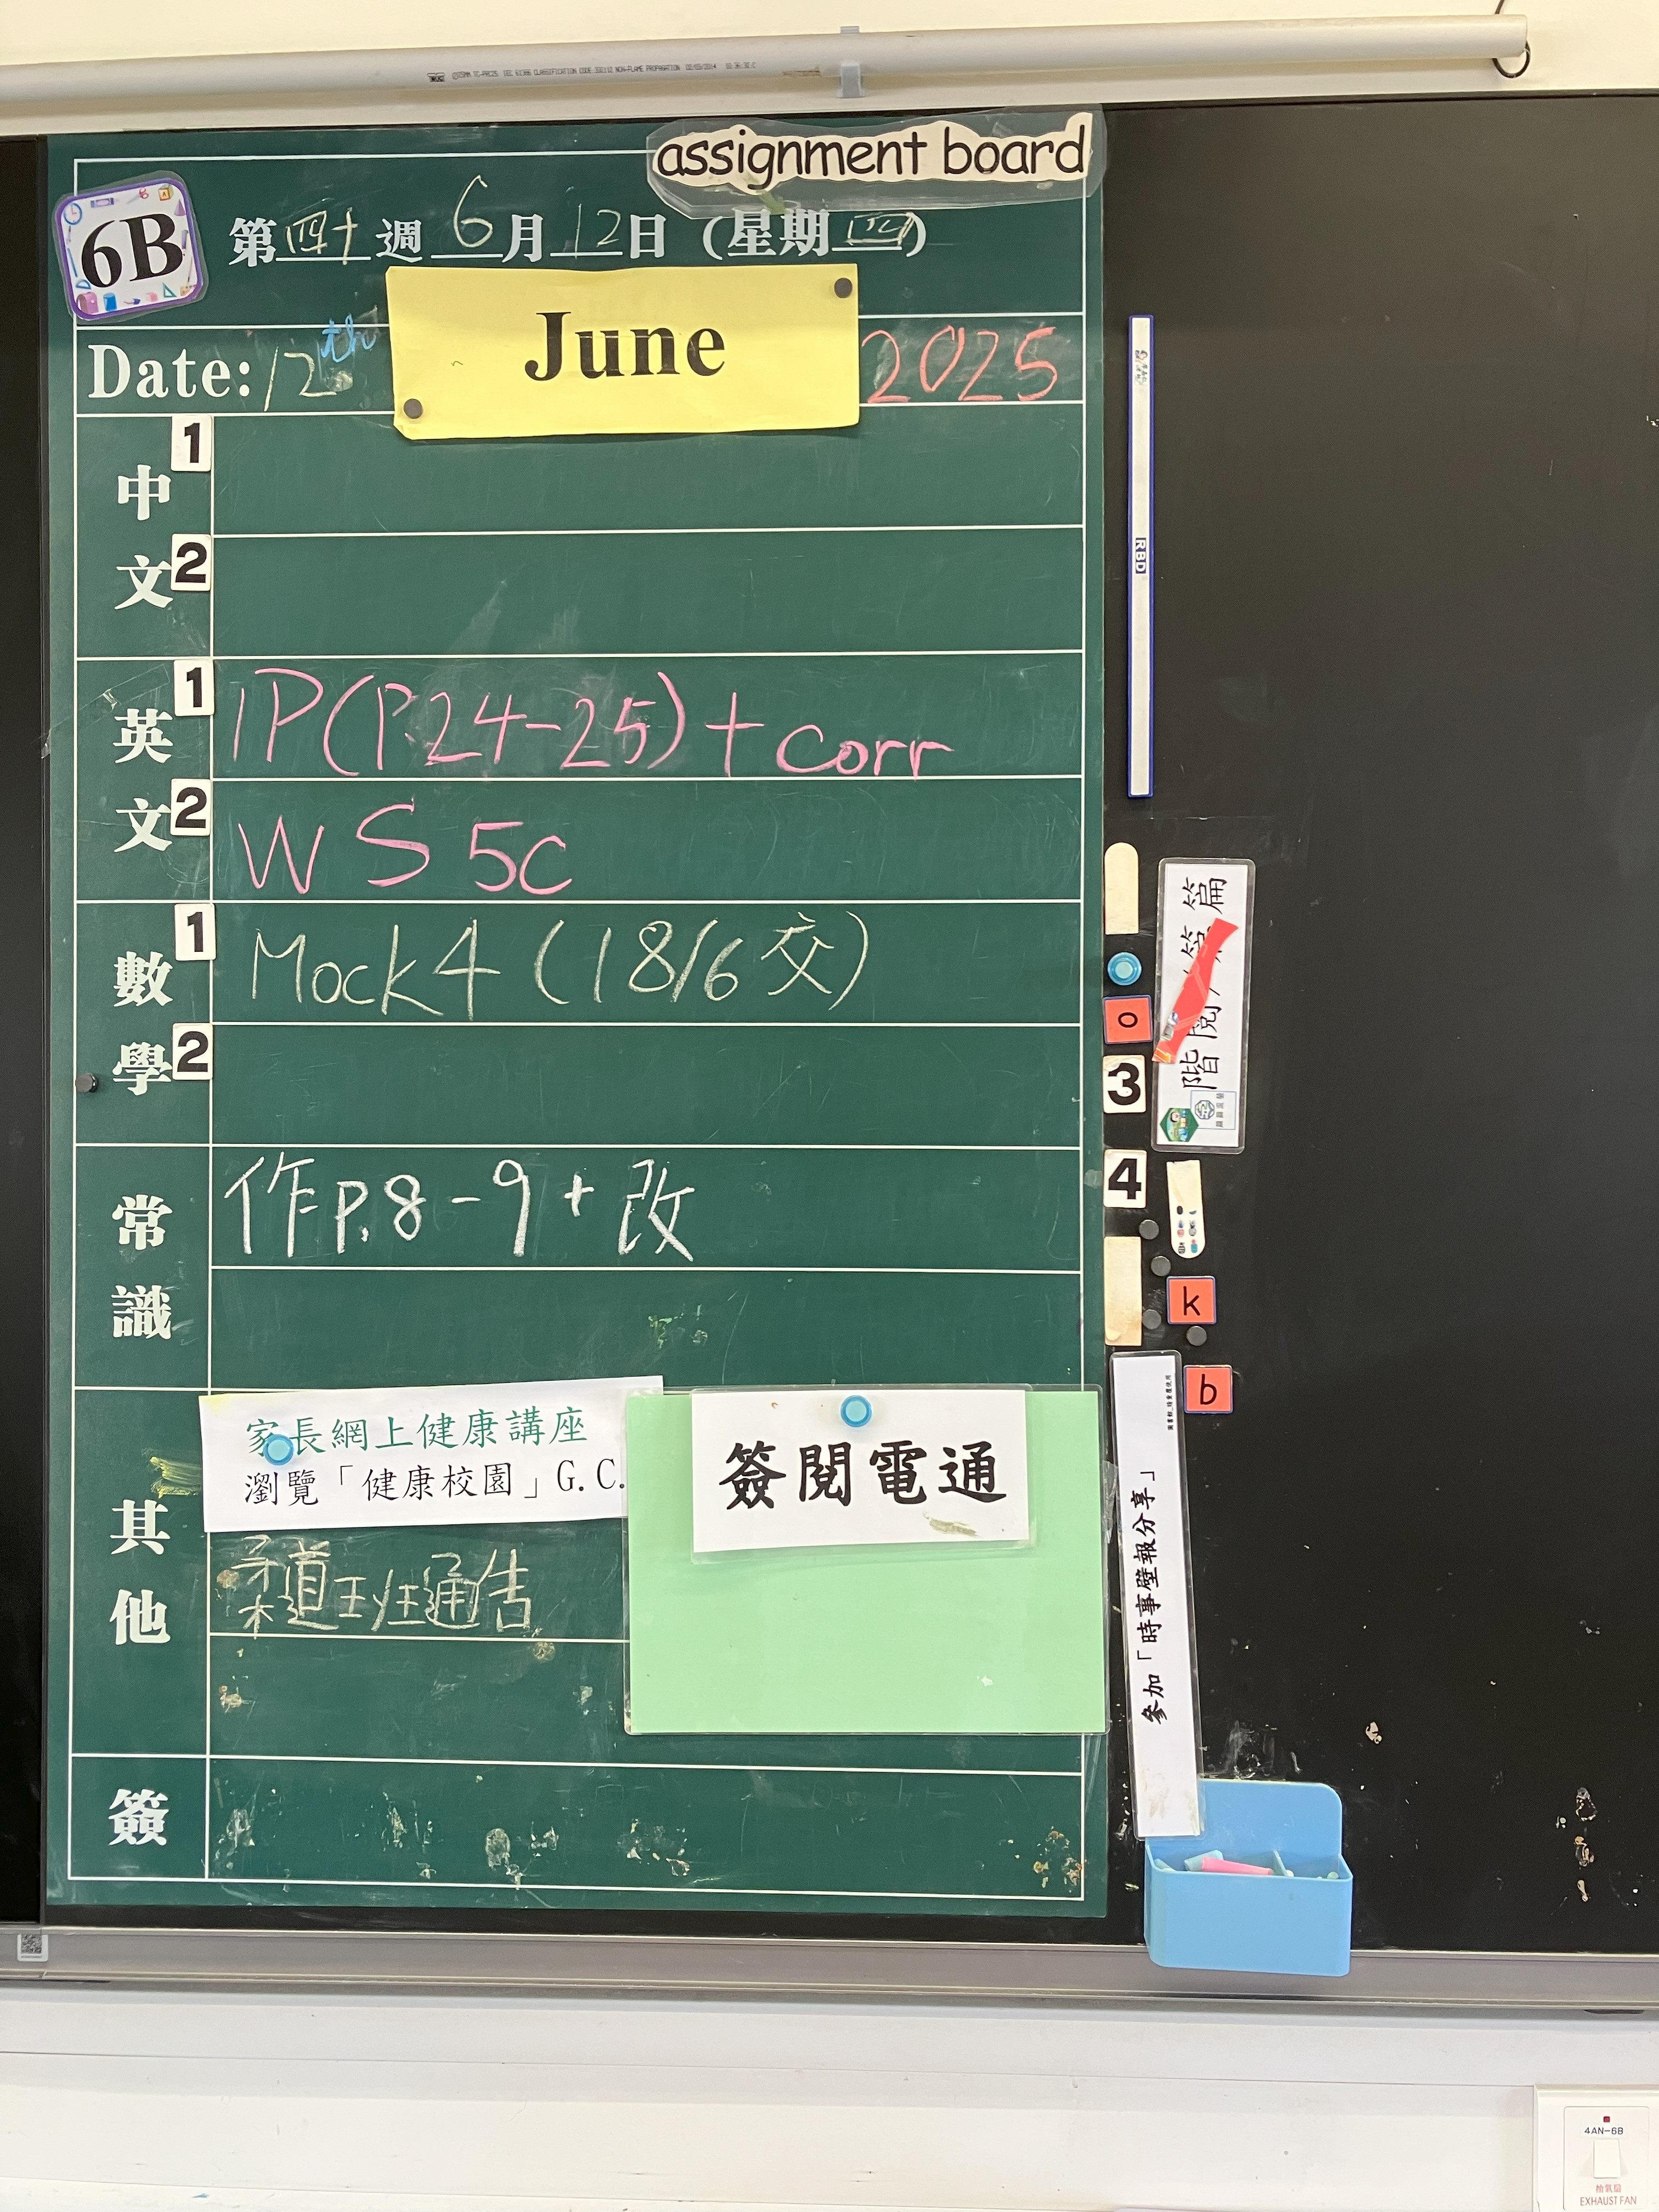 assignment board
6B
第四十週 6月12日 (星期四)
Date: 12th June 2025
中文
1
2
英文
1 IP(P.24-25)+corr
2 WS 5C
數學
1 Mock4 (18/6交)
2
常識
作P.8-9+改
其他
家長網上健康講座
瀏覽「健康校園」G.C.
簽閱電通
柔道班通告
簽
RBD
o
3
4
k
b
參加「時事壁報分享」
4AN-6B
抽氣扇
EXHAUST FAN